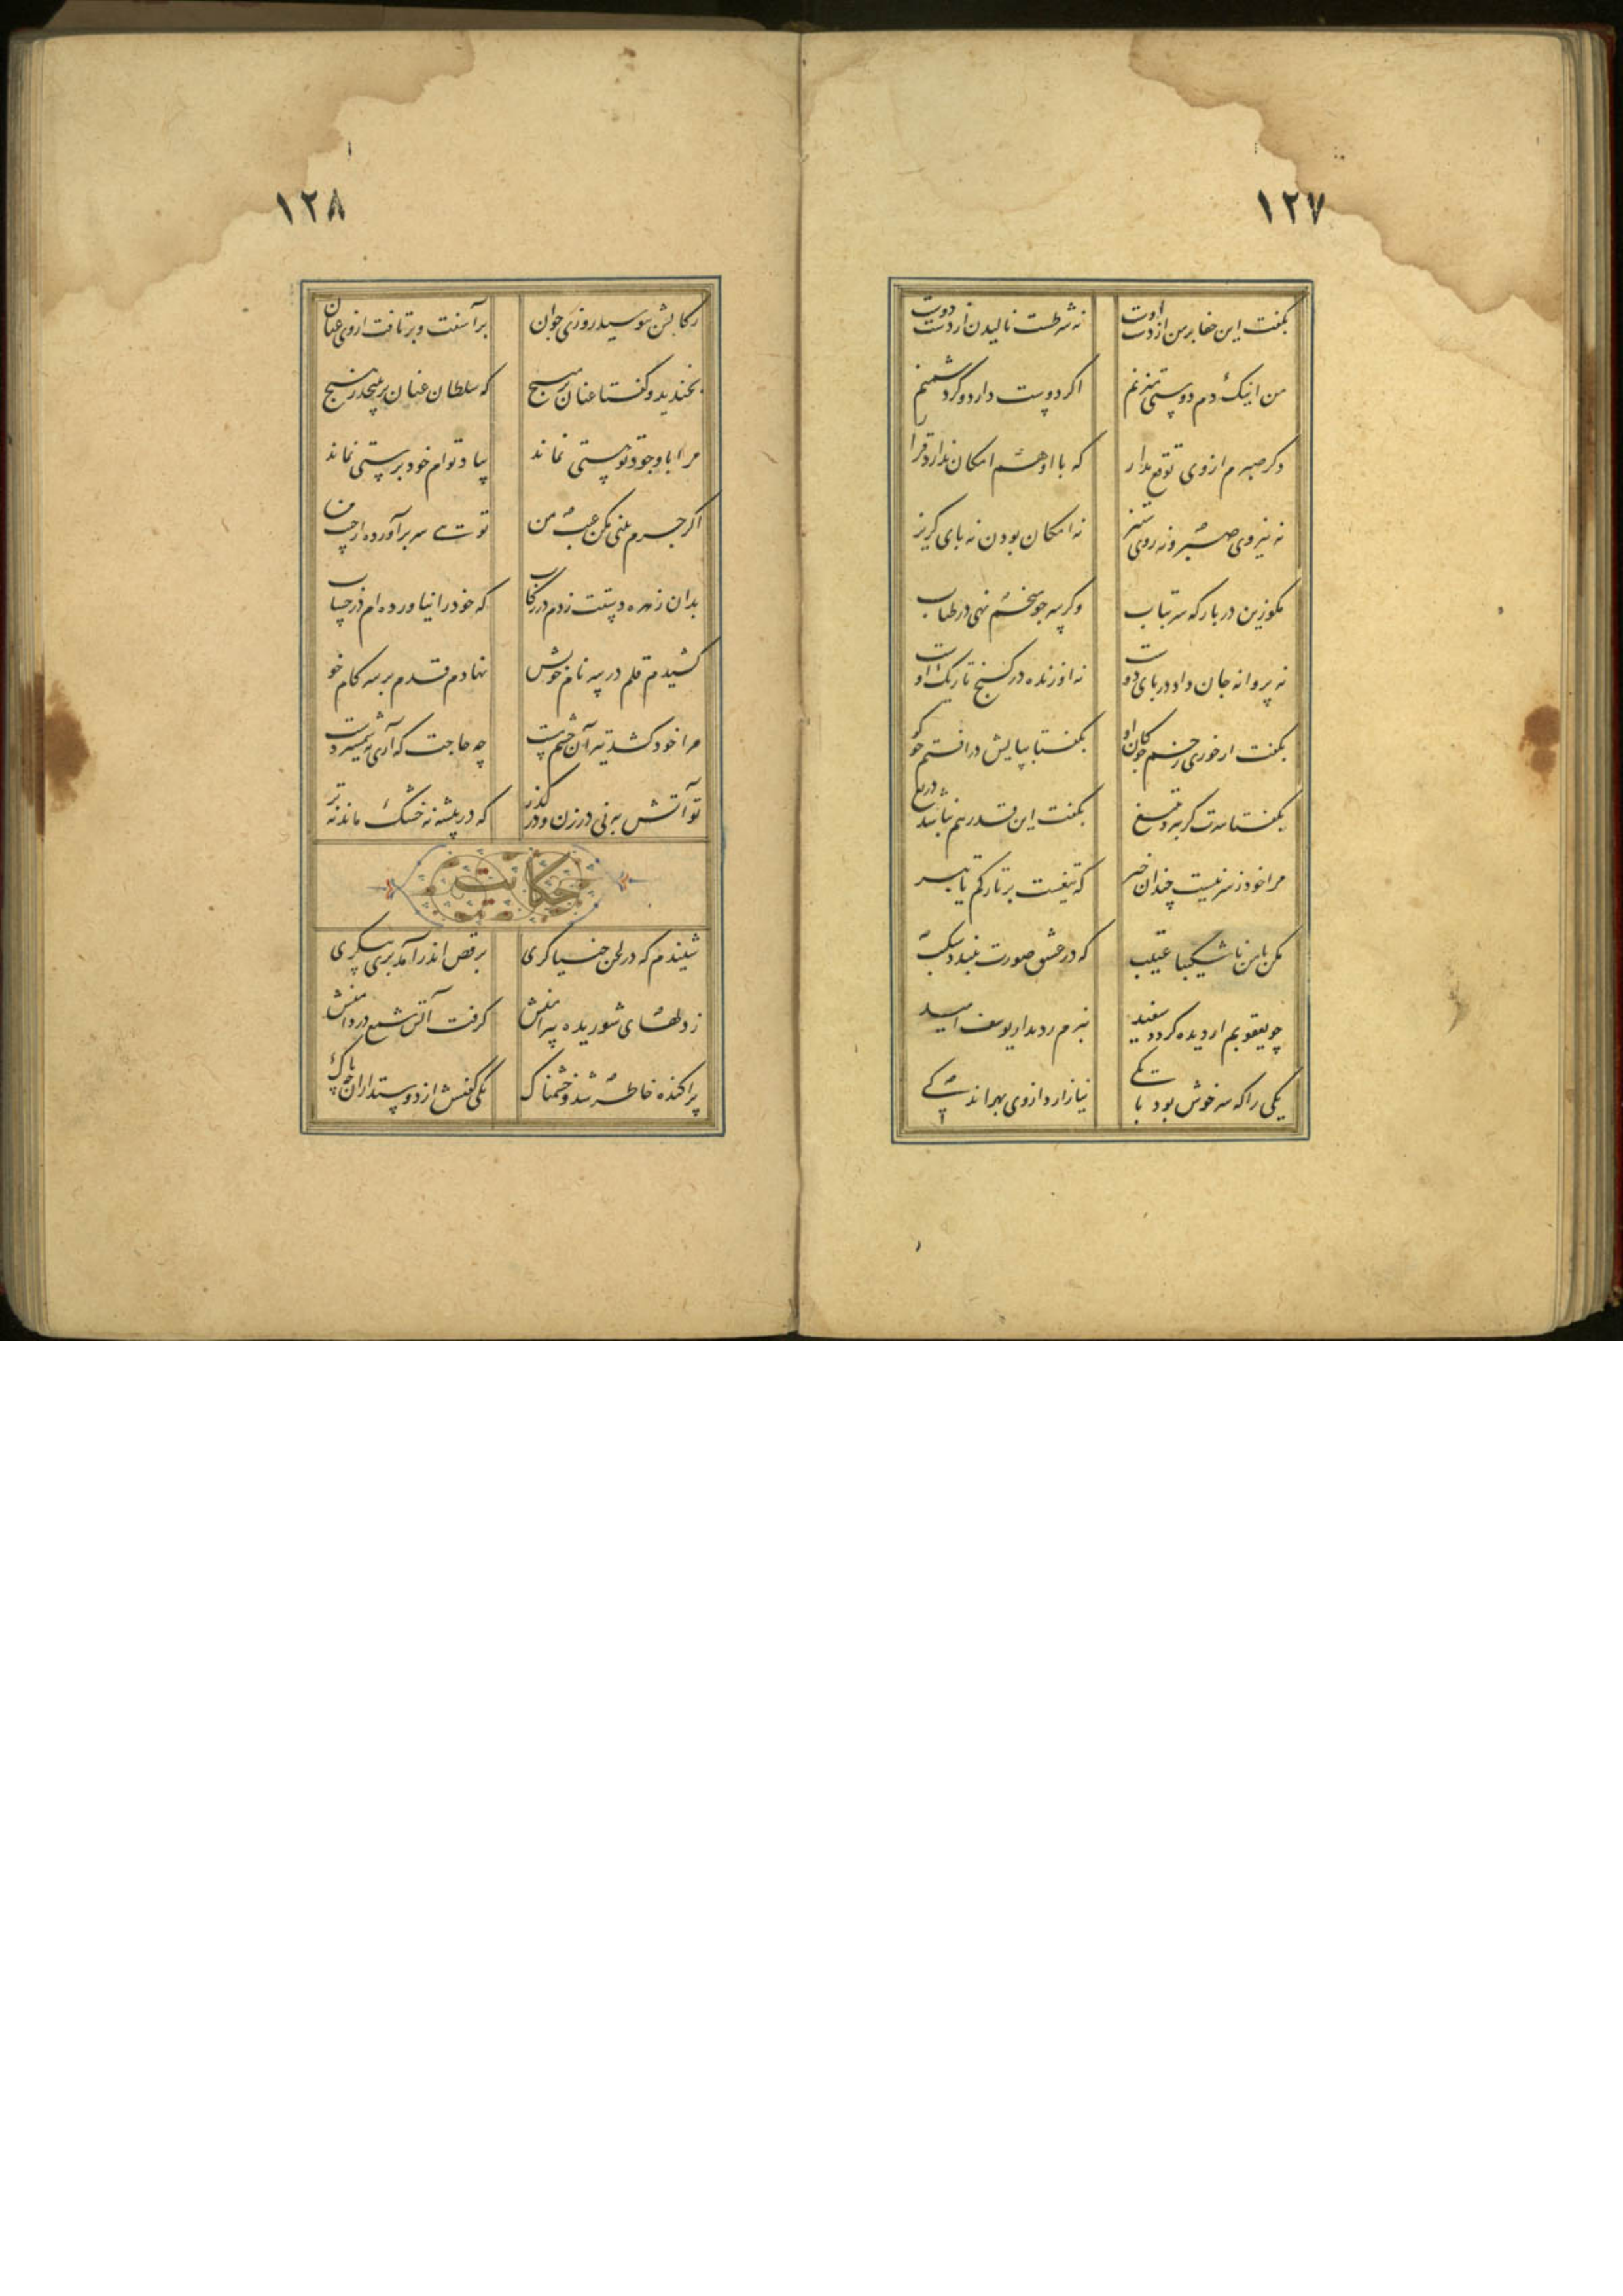 ۱۲۷
بگفت این جفا بر من از دست اوست نه شرطست نالیدن از دست دوست
من اینک دم دوستی میزنم اگر دوست دارد وگر دشمنم
دگر صبرم از وی توقع مدار که با او هم امکان ندارد قرار
نه نیروی صبر و نه روی ستیز نه امکان بودن نه پای گریز
مگو زین در بارگه سر بتاب وگر سر چو میخم نهی در طناب
نه پروانه جان داد در پای دوست نه او زنده در کنج تاریک اوست
بگفت ار خوری زخم چوکان او بگفتا بپایش در افتم چو گو
بگفتا سرت گر ببرد بتیغ بگفت این قدر هم نباشد دریغ
مرا خود ز سر نیست چندان خبر که تیغست بر تارکم یا تبر
مکن با من ناشکیبا عتیب که در عشق صورت نبندد شکیب
چو یعقوبم ار دیده گردد سفید نبرم ز دیدار یوسف امید
یکی را که سر خوش بود با یکی نیازارد از وی بهر اندکی
۱۲۸
رکابش ببوسید روزی جوان برآشفت و برتافت از وی عنان
بخندید و گفتا عنان بر مپیچ که سلطان عنان بر نپیچد ز هیچ
مرا با وجود تو هستی نماند بیاد توام خود پرستی نماند
اگر جرم بینی مکن عیب من تویی سر برآورده از جیب من
بدان زهره دستت زدم در رکاب که خود را نیاورده ام در حساب
کشیدم قلم در سر نام خویش نهادم قدم بر سر کام خویش
مرا خود کشد تیر آن چشم مست چه حاجت که آری بشمشیر دست
تو آتش به نی در زن و در گذر که در بیشه نه خشک ماند نه تر
حکایت
شنیدم که در لحن خنیاگری برقص اندر آمد پری پیکری
ز دلهای شوریده پیرامنش گرفت آتش شمع در دامنش
پراکنده خاطر شد و خشمناک یکی گفتش از دوستداران چه باک